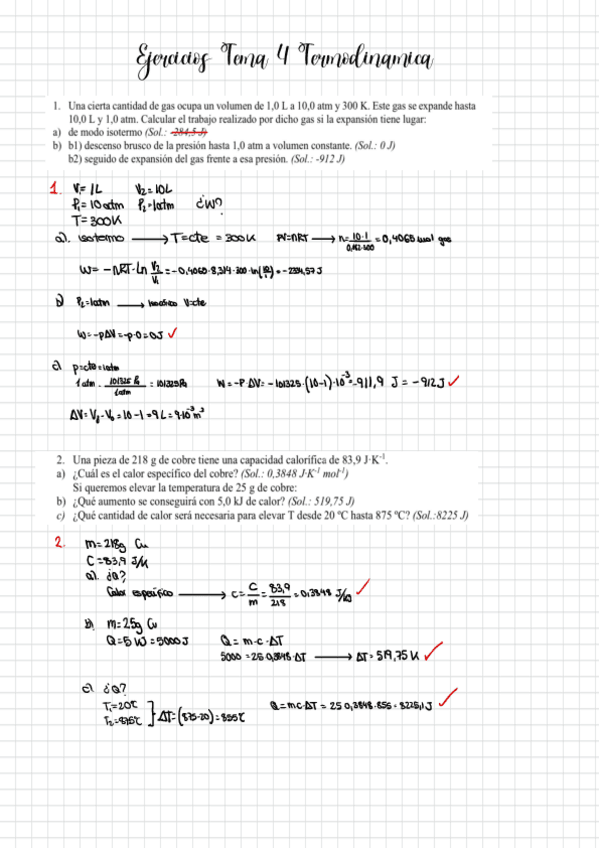 Ejercicios Tema 4 Termodinamica
1. Una cierta cantidad de gas ocupa un volumen de 1,0 L a 10,0 atm y 300 K. Este gas se expande hasta
10,0 L y 1,0 atm. Calcular el trabajo realizado por dicho gas si la expansión tiene lugar:
a) de modo isotermo (Sol.: -284,5 J)
b) b1) descenso brusco de la presión hasta 1,0 atm a volumen constante. (Sol.: 0 J)
b2) seguido de expansión del gas frente a esa presión. (Sol.: -912 J)
1. V₁= 1L V₂= 10L
P₁= 10 atm P₂= 1atm ¿W?
T= 300K
a). isotermo → T=cte = 300K PV=nRT → n= 10·1 / 0,082·300 = 0,4065 mol gas
W= -nRT·Ln V₂/V₁ = -0,4065·8,314·300·ln(10/1) = -2334,57 J
b) P₂=1atm → Isocórico V=cte
W=-pΔV=-p·0=0J ✓
c) p=cte=1atm
1 atm · 101325 Pa / 1atm = 101325 Pa W=-P·ΔV= -101325·(10-1)·10⁻³=-911,9 J = -912J ✓
ΔV= Vf-V₀ = 10-1 = 9L = 9·10⁻³m³
2. Una pieza de 218 g de cobre tiene una capacidad calorífica de 83,9 J·K⁻¹.
a) ¿Cuál es el calor específico del cobre? (Sol.: 0,3848 J·K⁻¹ mol⁻¹)
Si queremos elevar la temperatura de 25 g de cobre:
b) ¿Qué aumento se conseguirá con 5,0 kJ de calor? (Sol.: 519,75 J)
c) ¿Qué cantidad de calor será necesaria para elevar T desde 20 ºC hasta 875 ºC? (Sol.:8225 J)
2. m=218g Cu
C=83,9 J/K
a). ¿a?
Calor específico → c= C/m = 83,9/218 = 0,3848 ✓
b) m=25g Cu
Q=5 = 5000J Q = m·c·ΔT
5000 = 25·0,3848·ΔT → ΔT= 519,75 K ✓
c) ¿Q?
T₁=20℃
T₂=875℃ } ΔT=(875-20)=855℃ Q=m·c·ΔT = 25·0,3848·855 = 8225,1 J ✓